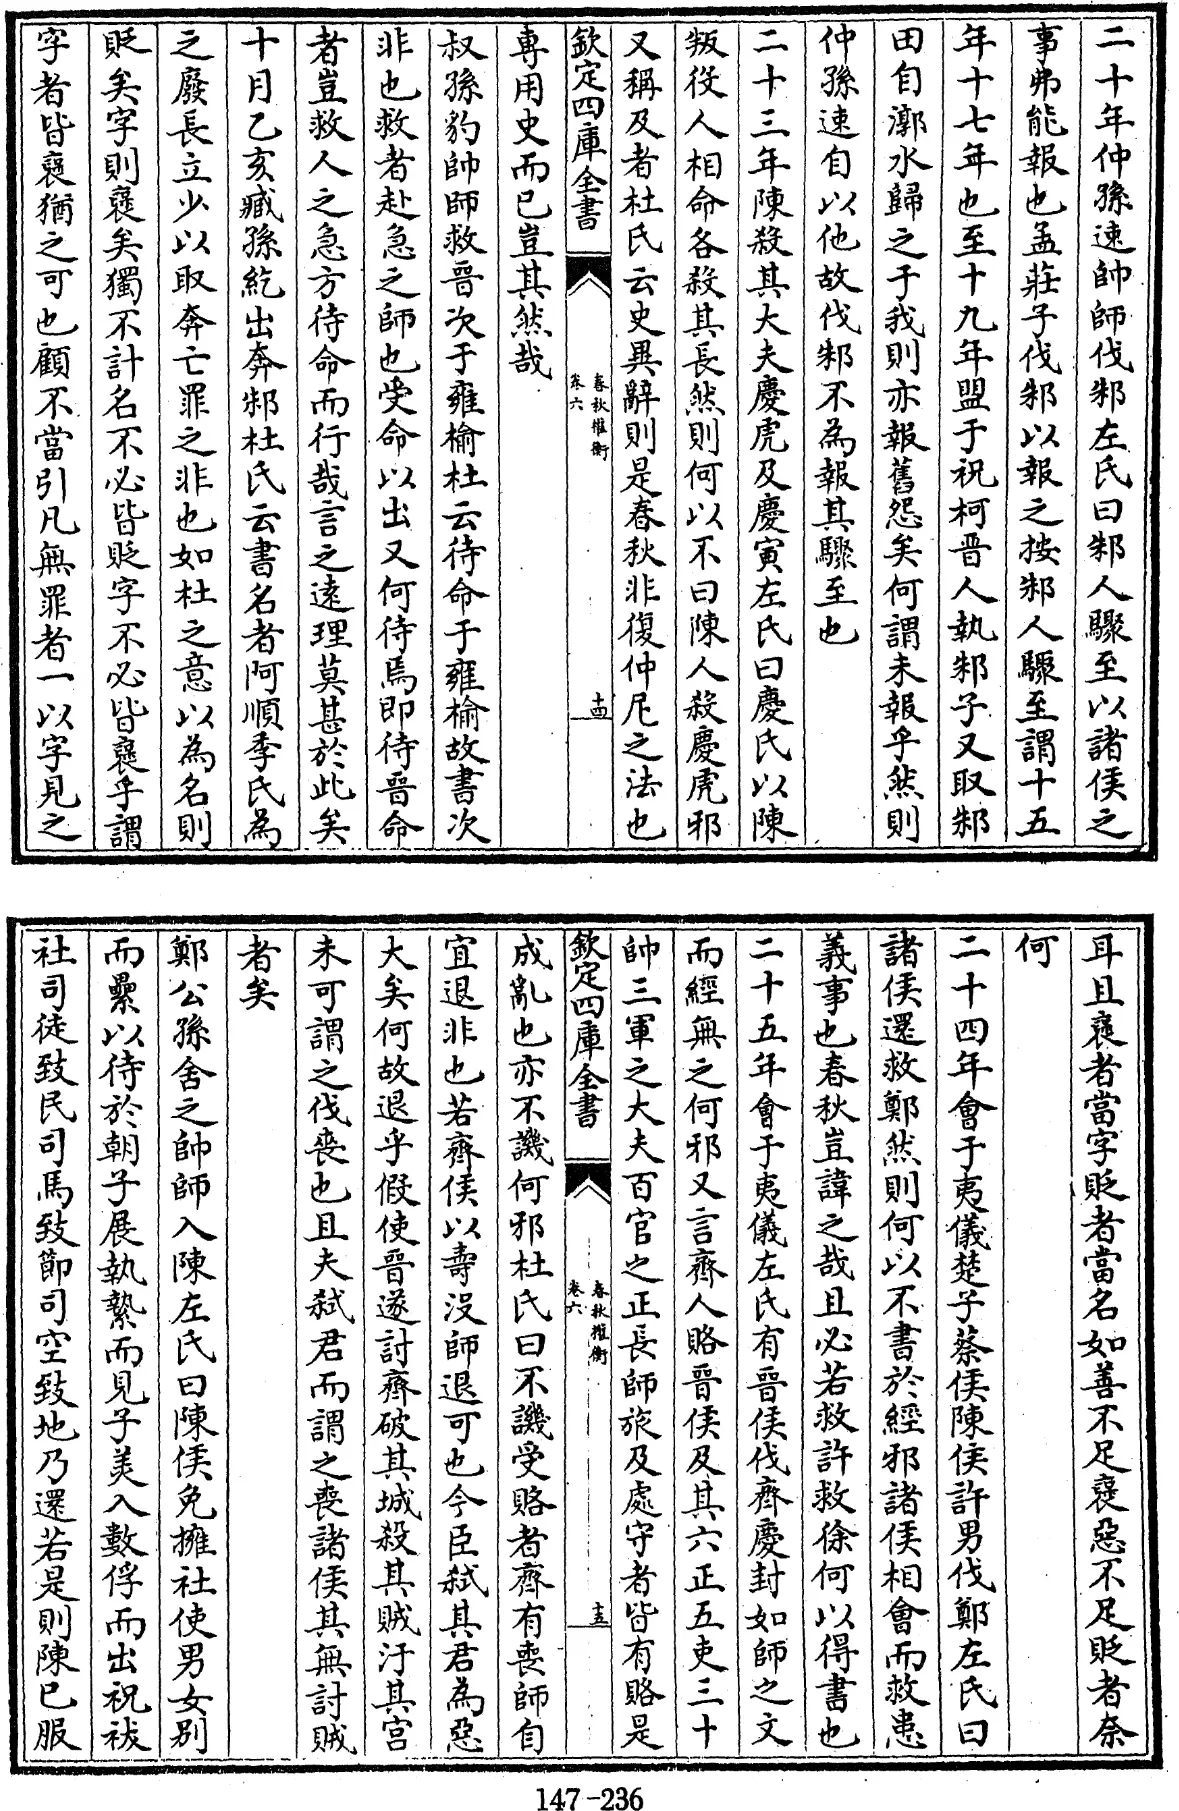 二十年仲孫速帥師伐邾左氏曰邾人驟至以諸侯之
事弗能報也孟莊子伐邾以報之按邾人驟至謂十五
年十七年也至十九年盟于祝柯晉人執邾子又取邾
田自漷水歸之于我則亦報舊怨矣何謂未報乎然則
仲孫速自以他故伐邾不為報其驟至也
二十三年陳殺其大夫慶虎及慶寅左氏曰慶氏以陳
叛役人相命各殺其長然則何以不曰陳人殺慶虎邪
又稱及者杜氏云史異辭則是春秋非復仲尼之法也
欽定四庫全書
春秋權衡
卷六
十四
專用史而已豈其然哉
叔孫豹帥師救晉次于雍榆杜云待命于雍榆故書次
非也救者赴急之師也受命以出又何待焉即待晉命
者豈救人之急方待命而行哉言之遠理莫甚於此矣
十月乙亥臧孫紇出奔邾杜氏云書名者阿順季氏為
之廢長立少以取奔亡罪之非也如杜之意以為名則
貶矣字則褒矣獨不計名不必皆貶字不必皆褒乎謂
字者皆褒猶之可也顧不當引凡無罪者一以字見之
耳且褒者當字貶者當名如善不足褒惡不足貶者奈
何
二十四年會于夷儀楚子蔡侯陳侯許男伐鄭左氏曰
諸侯還救鄭然則何以不書於經邪諸侯相會而救患
義事也春秋豈諱之哉且必若救許救徐何以得書也
二十五年會于夷儀左氏有晉侯伐齊慶封如師之文
而經無之何邪又言齊人賂晉侯及其六正五吏三十
帥三軍之大夫百官之正長師旅及處守者皆有賂是
欽定四庫全書
春秋權衡
卷六
十五
成亂也亦不譏何邪杜氏曰不譏受賂者齊有喪師自
宜退非也若齊侯以壽沒師退可也今臣弒其君為惡
大矣何故退乎假使晉遂討齊破其城殺其賊汙其宮
未可謂之伐喪也且夫弒君而謂之喪諸侯其無討賊
者矣
鄭公孫舍之帥師入陳左氏曰陳侯免擁社使男女別
而纍以待於朝子展執縶而見子美入數俘而出祝祓
社司徒致民司馬致節司空致地乃還若是則陳已服
147-236